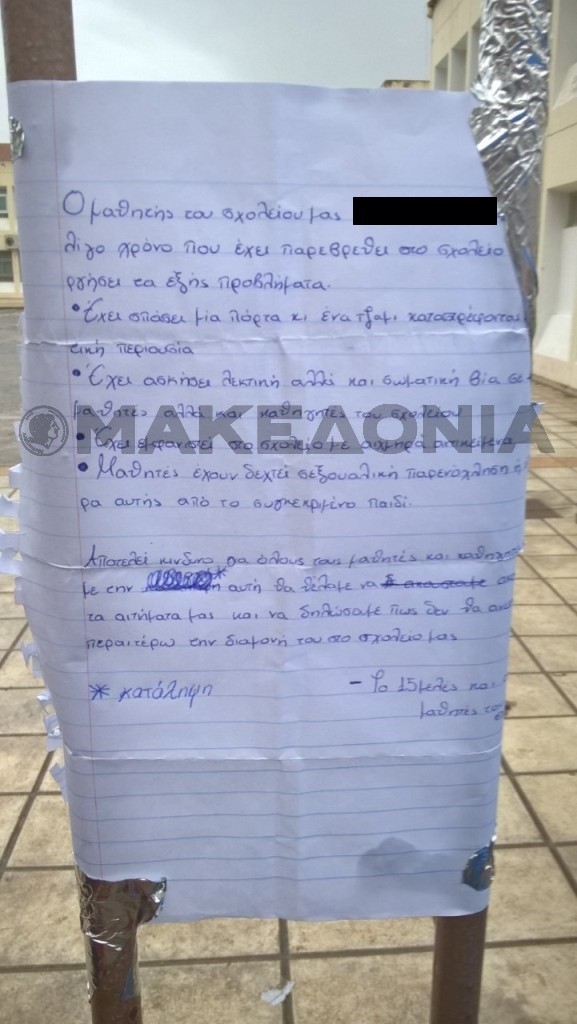 Ο μαθητής του σχολείου μας
λίγο χρόνο που έχει παρεβρεθεί στο σχολείο
ργήσει τα εξής προβλήματα.
•Έχει σπάσει μία πόρτα κι ένα τζάμι καταστρέφοντα
τική περιουσία
•Έχει ασκήσει λεκτική αλλά και σωματική βία σε
μαθητές αλλά και καθηγητές του σχολείου
•Έχει εμφανιστεί στο σχολείο με αιχμηρά αντικείμενα
ΜΑΚΕΔΟΝΙΑ
•Μαθητές έχουν δεχτεί σεξουαλική παρενόχληση ή
ρα αυτής από το συγκεκριμένο παιδί.
Αποτελεί κίνδυνο για όλους τους μαθητές και καθηγη
με την * αυτή θα θέλαμε να
τα αιτήματα μας και να δηλώσουμε πως δεν θα ανε
περαιτέρω την διαμονή του στο σχολείο μας
* κατάληψη
- Το 15μελές και
μαθητές το